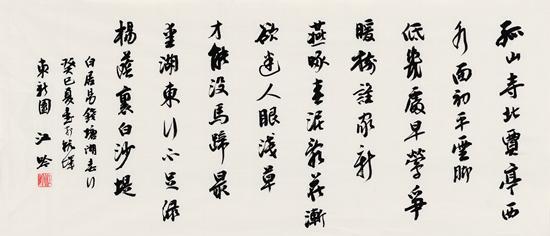 孤山寺北賈亭西
水面初平雲脚
低幾處早鶯爭
暖樹誰家新
燕啄春泥亂花漸
欲迷人眼淺草
才能沒馬蹄最
愛湖東行不足綠
楊蔭裏白沙堤
白居易錢塘湖春行
癸巳夏書於
東新園 江吟